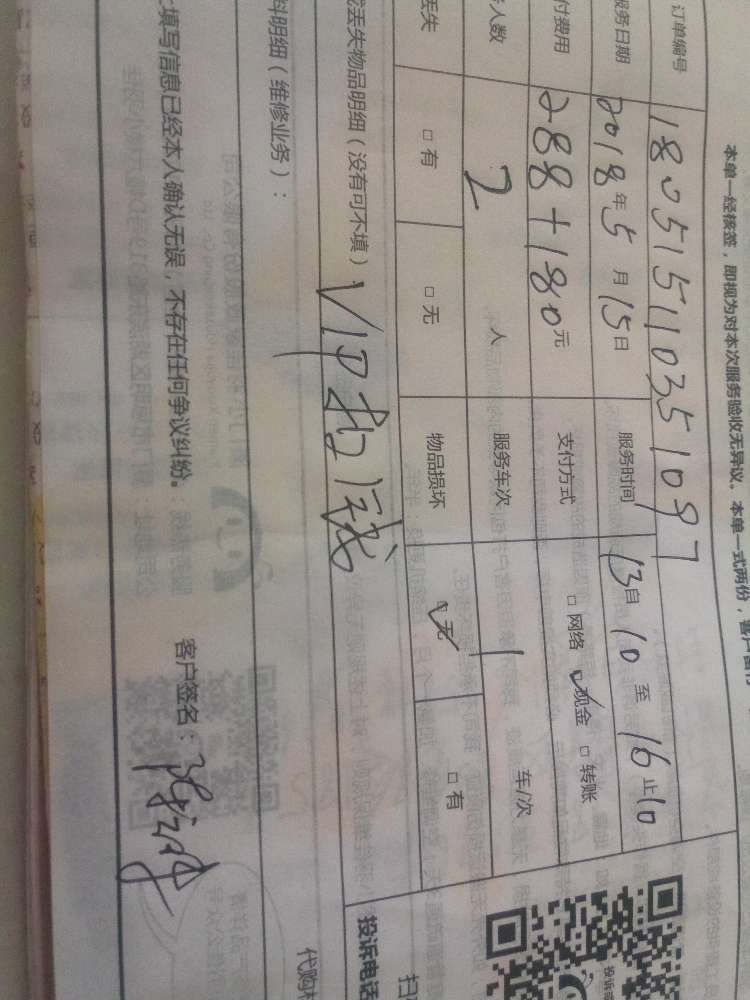 本单一经核签，即视为对本次服务验收无异议。本单一式两份，客户留存
订单编号 180515110351097
服务日期 2018年5月15日 服务时间 13自10至16止10
付费用 288+180元 支付方式 □网络 ☑现金 □转账
人数 2 人 服务车次 1 车/次
丢失 □有 □无 物品损坏 ☑无 □有
丢失物品明细（没有可不填）VIP
料明细（维修业务）：
填写信息已经本人确认无误，不存在任何争议纠纷。 客户签名：
投诉电话
代购